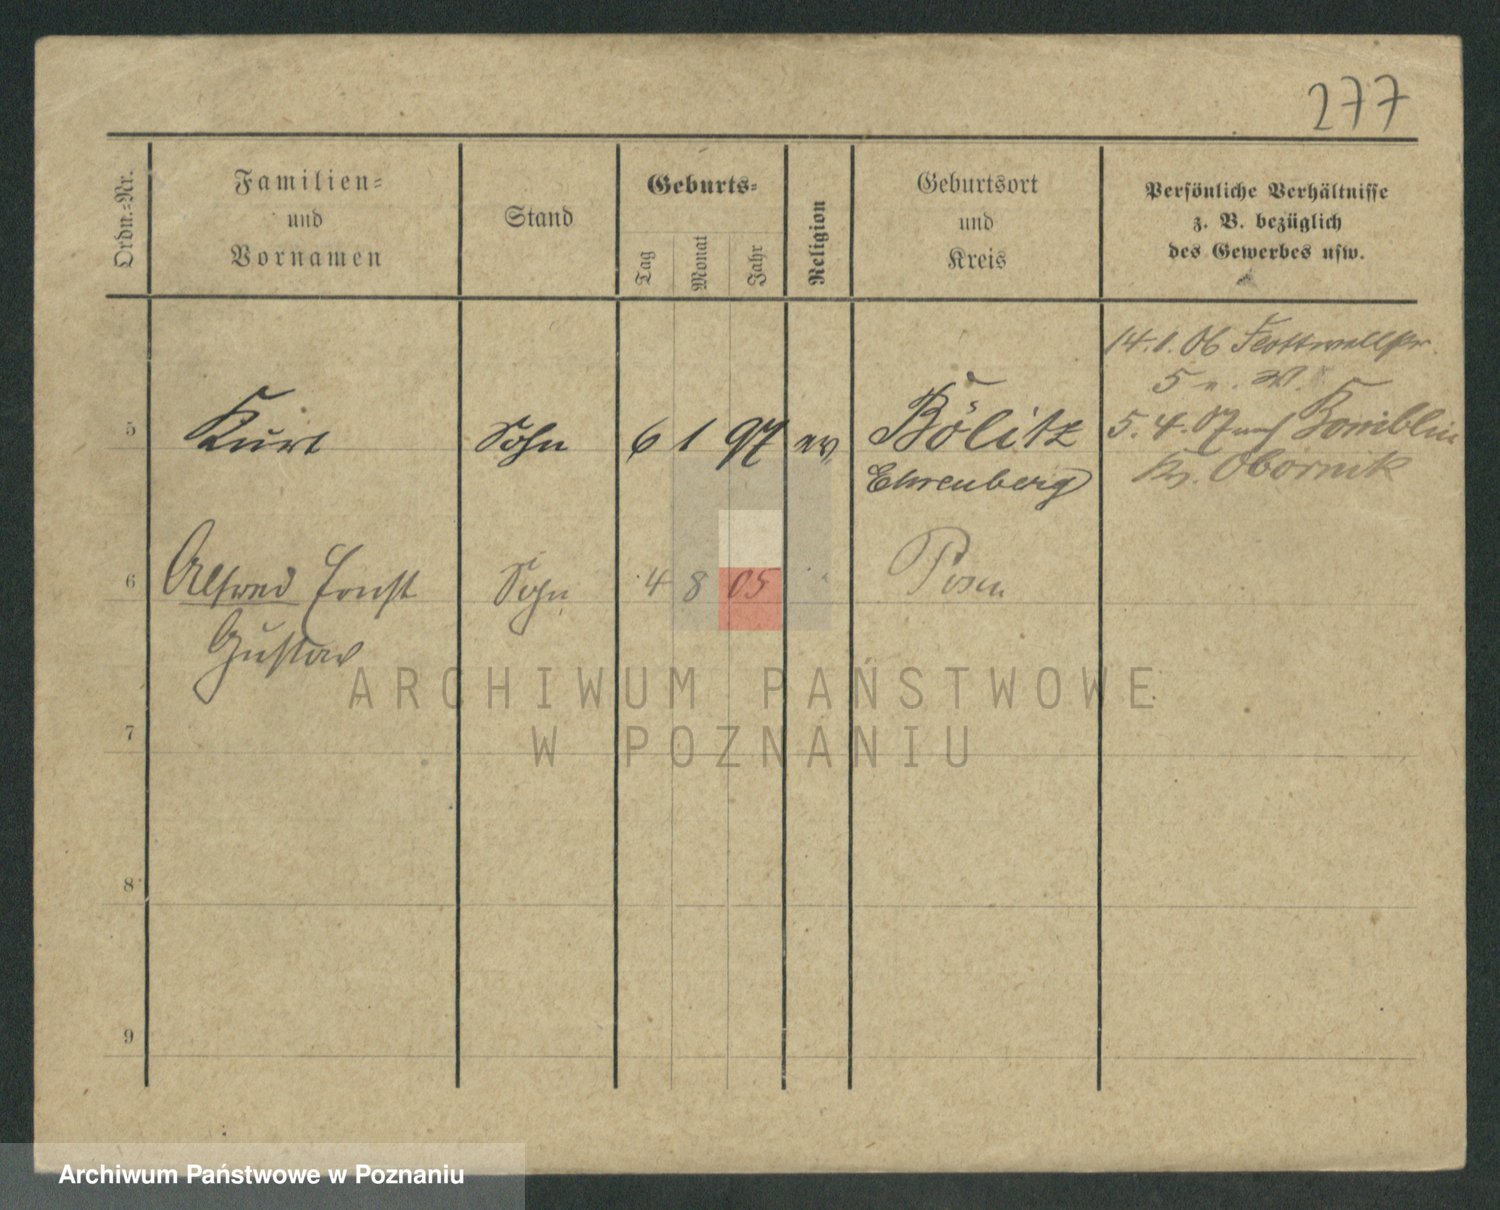 277
Ordn.-Nr.
Familien-
und
Vornamen
Stand
Geburts-
Tag
Monat
Jahr
Religion
Geburtsort
und
Kreis
Persönliche Verhältnisse
z. B. bezüglich
des Gewerbes usw.
14.1.06
5
5 Kurt Sohn 6 1 97 ev Bölitz
5.4.07 nach
Ehrenberg
Kr. Obornik
6 Alfred Ernst Sohn 4 8 05 Posen
Gustav
7
8
9
ARCHIWUM PAŃSTWOWE
W POZNANIU
Archiwum Państwowe w Poznaniu